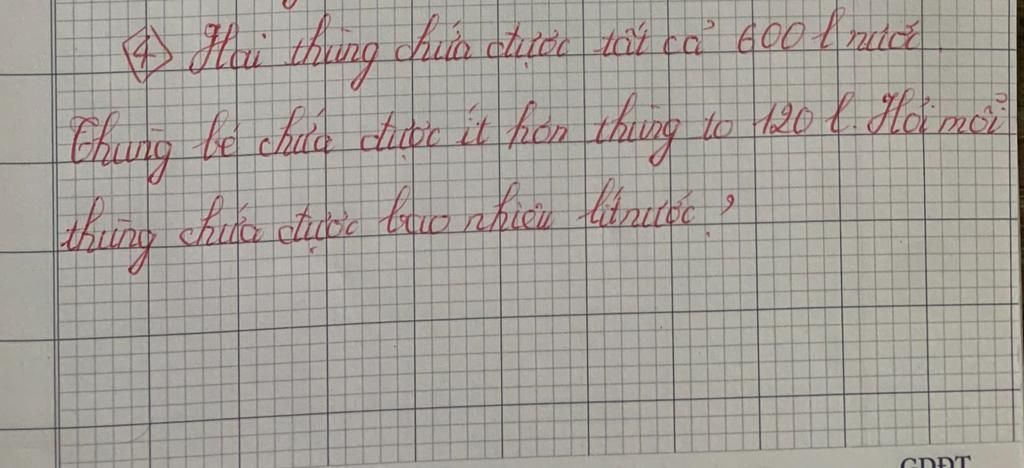 ④ Hai thùng chứa được tất cả 600 l nước.
Thùng bé chứa được ít hơn thùng to 120 l. Hỏi mỗi
thùng chứa được bao nhiêu lít nước?
GDĐT